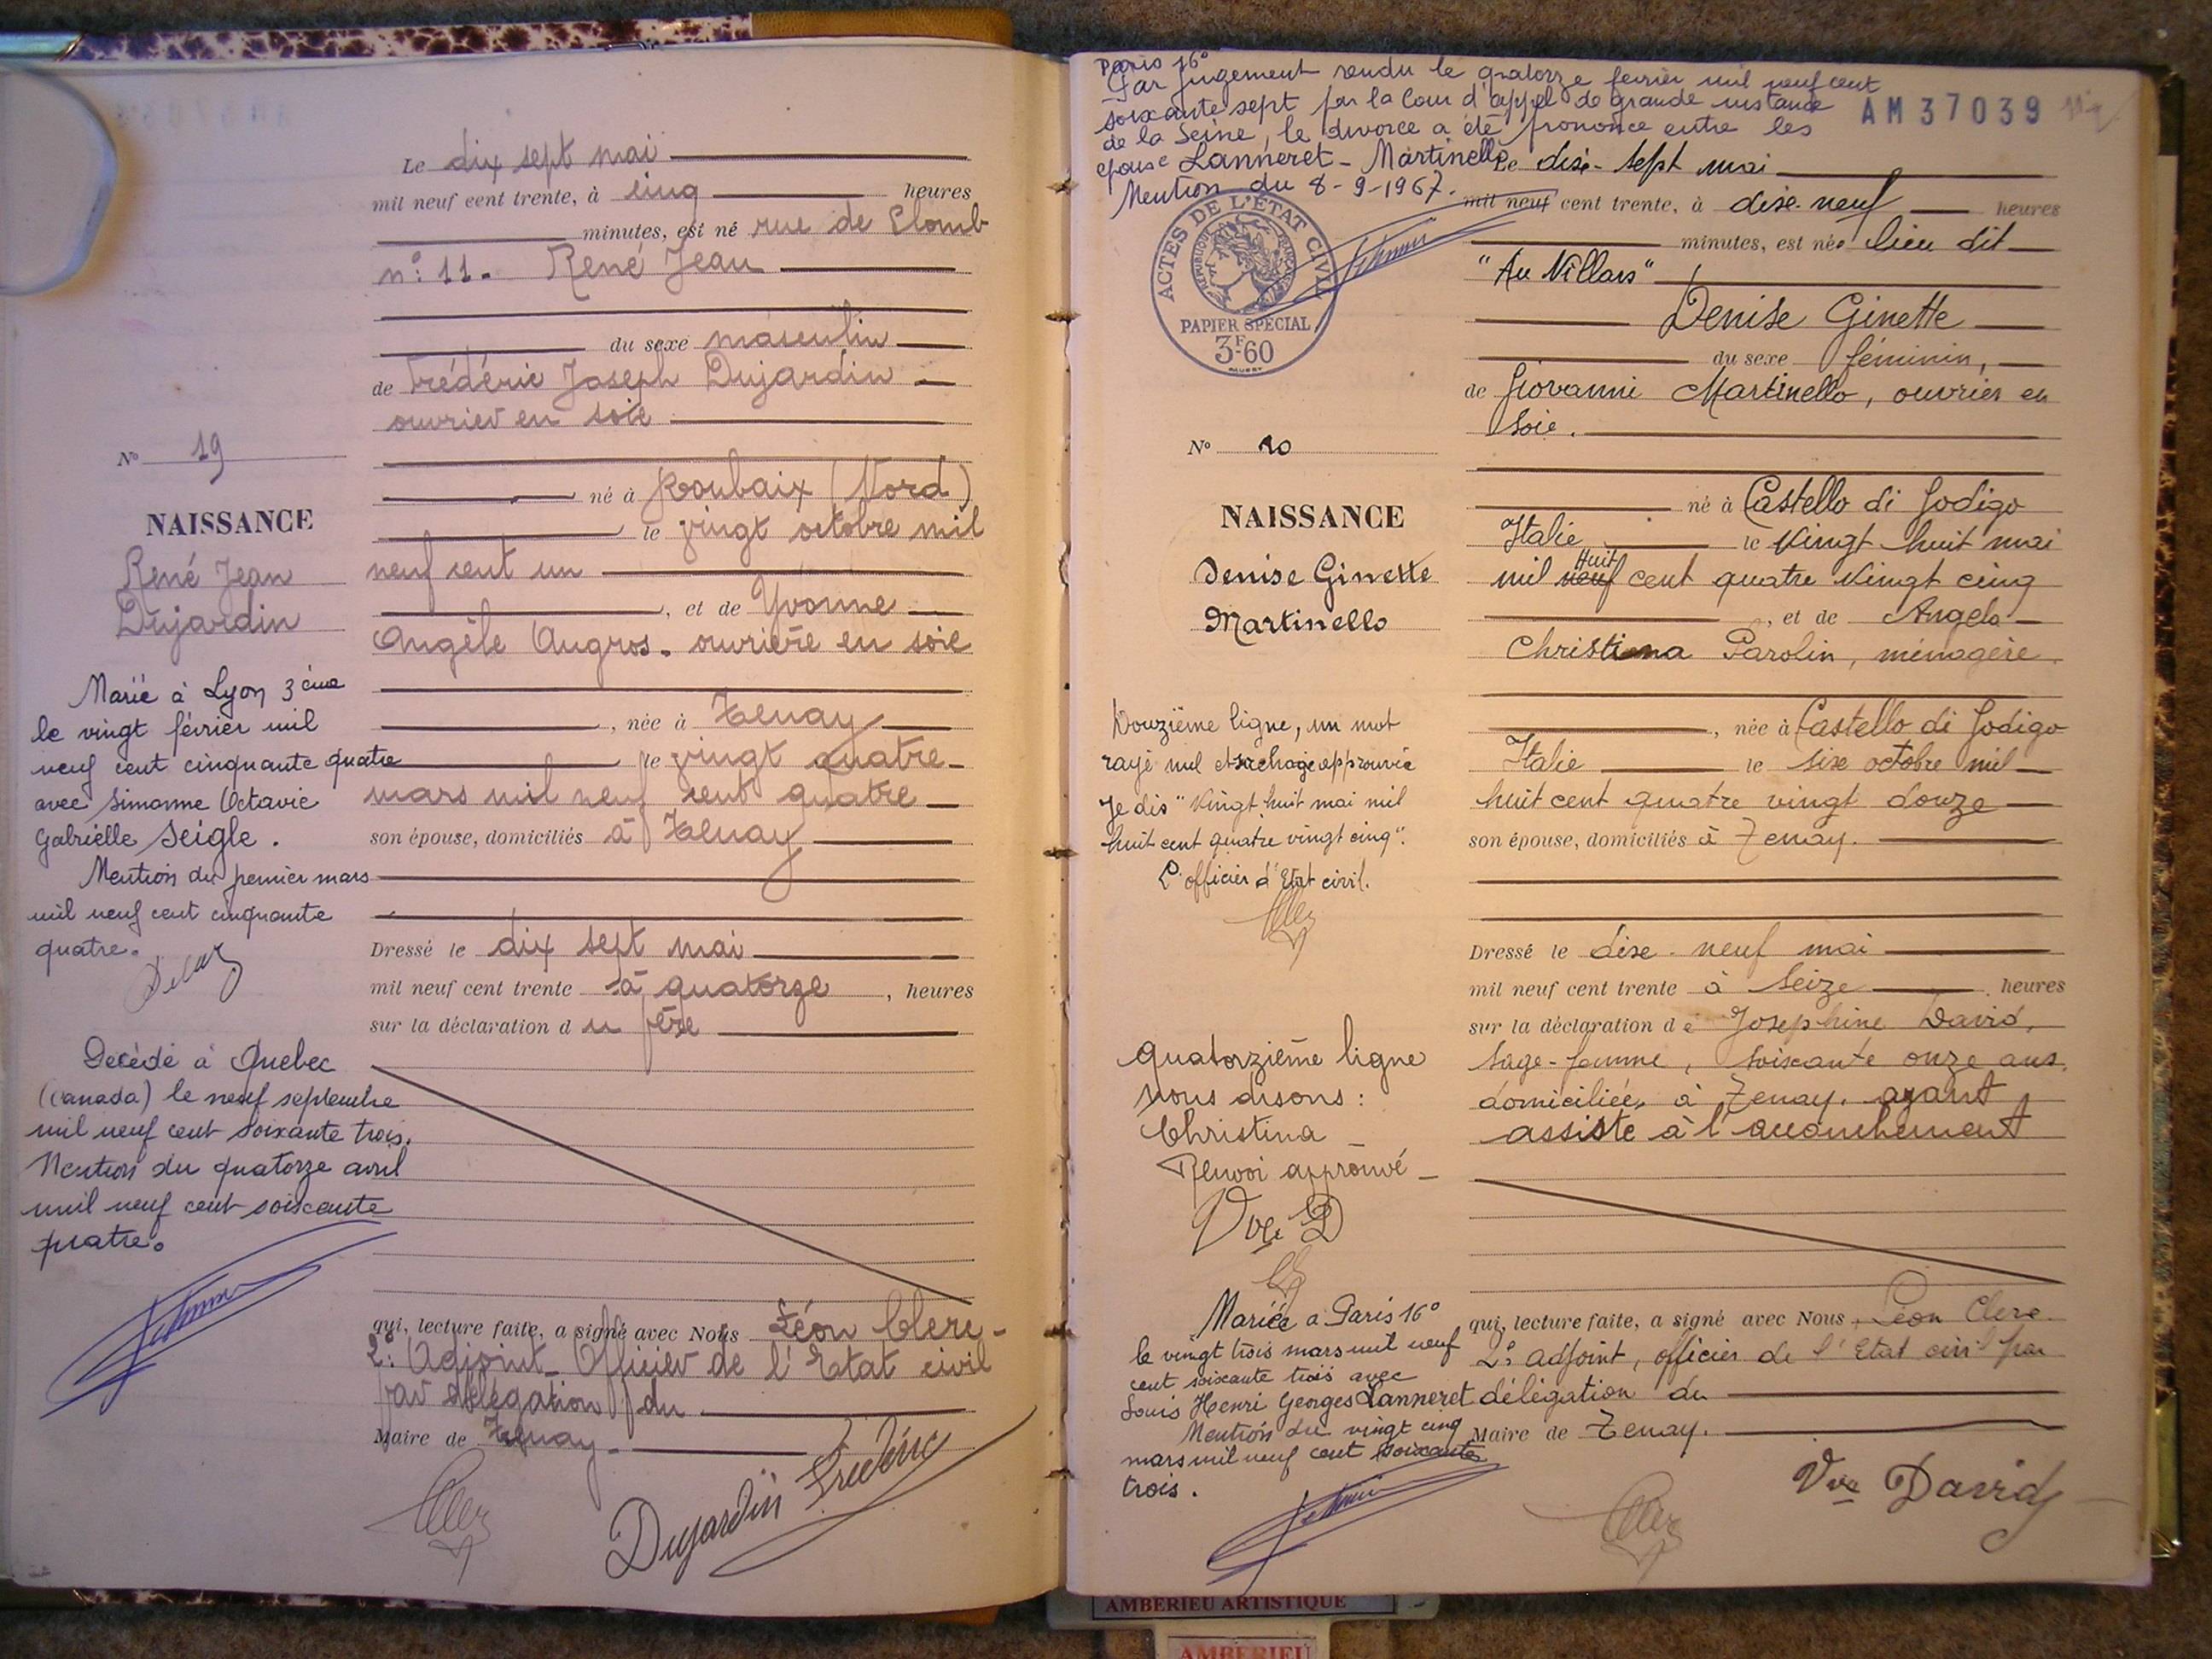 Le dix sept mai
mil neuf cent trente, à cinq heures
minutes, est né rue de Plomb
n° 11. René Jean
du sexe masculin
de Frédéric Joseph Dujardin
ouvrier en soie
N° 19
né à Roubaix (Nord)
NAISSANCE
le vingt octobre mil
René Jean
neuf cent un
Dujardin
, et de Yvonne
Angèle Augros. ouvrière en soie
Marié à Lyon 3ème
le vingt février mil
neuf cent cinquante quatre
avec Simonne Octavie
Gabrielle Seigle.
Mention du premier mars
mil neuf cent cinquante
quatre.
, née à Tenay
le vingt quatre
mars mil neuf cent quatre
son épouse, domiciliés à Tenay
Dressé le dix sept mai
mil neuf cent trente à quatorze, heures
sur la déclaration du père
Decédé à Quebec
(Canada) le neuf septembre
mil neuf cent soixante trois.
Mention du quatorze avril
mil neuf cent soixante
quatre.
qui, lecture faite, a signé avec Nous Léon Clerc
2e Adjoint Officier de l'Etat civil
par délégation du
Maire de Tenay.
Dujardin Frédéric
Paris 16°
Par jugement rendu le quatorze fevrier mil neuf cent
soixante sept par la Cour d'appel de grande instance
de la Seine, le divorce a été prononcé entre les
epouse Lanneret - Martinello
Mention du 8-9-1967.
AM37039
ACTES DE L'ÉTAT CIVIL
RÉPUBLIQUE FRANÇAISE
PAPIER SPÉCIAL
3F60
Le dix-sept mai
mil neuf cent trente, à dix-neuf heures
minutes, est née lieu dit
"Au Villars"
Denise Ginette
du sexe féminin,
de Giovanni Martinello, ouvrier en
soie.
N° 20
né à Castello di Godigo
NAISSANCE
Italie le vingt huit mai
Huit
Denise Ginette
mil neuf cent quatre vingt cinq
Martinello
, et de Angela
Christina Parolin, ménagère
Douzième ligne, un mot
rayé nul et surchage approuvée
Je dis "vingt huit mai mil
huit cent quatre vingt cinq".
L'officier d'Etat civil.
, née à Castello di Godigo
Italie le six octobre mil
huit cent quatre vingt douze
son épouse, domiciliés à Tenay.
Dressé le dix-neuf mai
mil neuf cent trente à seize heures
sur la déclaration de Josephine David,
sage-femme, soixante onze ans,
domiciliée, à Tenay, ayant
assisté à l'accouchement
Quatorzième ligne
nous disons :
Christina
Renvoi approuvé
Vve D
Mariée à Paris 16°
le vingt trois mars mil neuf
cent soixante trois avec
Louis Henri Georges Lanneret
Mention du vingt cinq
mars mil neuf cent soixante
trois.
qui, lecture faite, a signé avec Nous, Léon Clerc
2e adjoint, officier de l'Etat civil par
délégation du
Maire de Tenay.
Vve David
AMBERIEU ARTISTIQUE
AMBERIEU